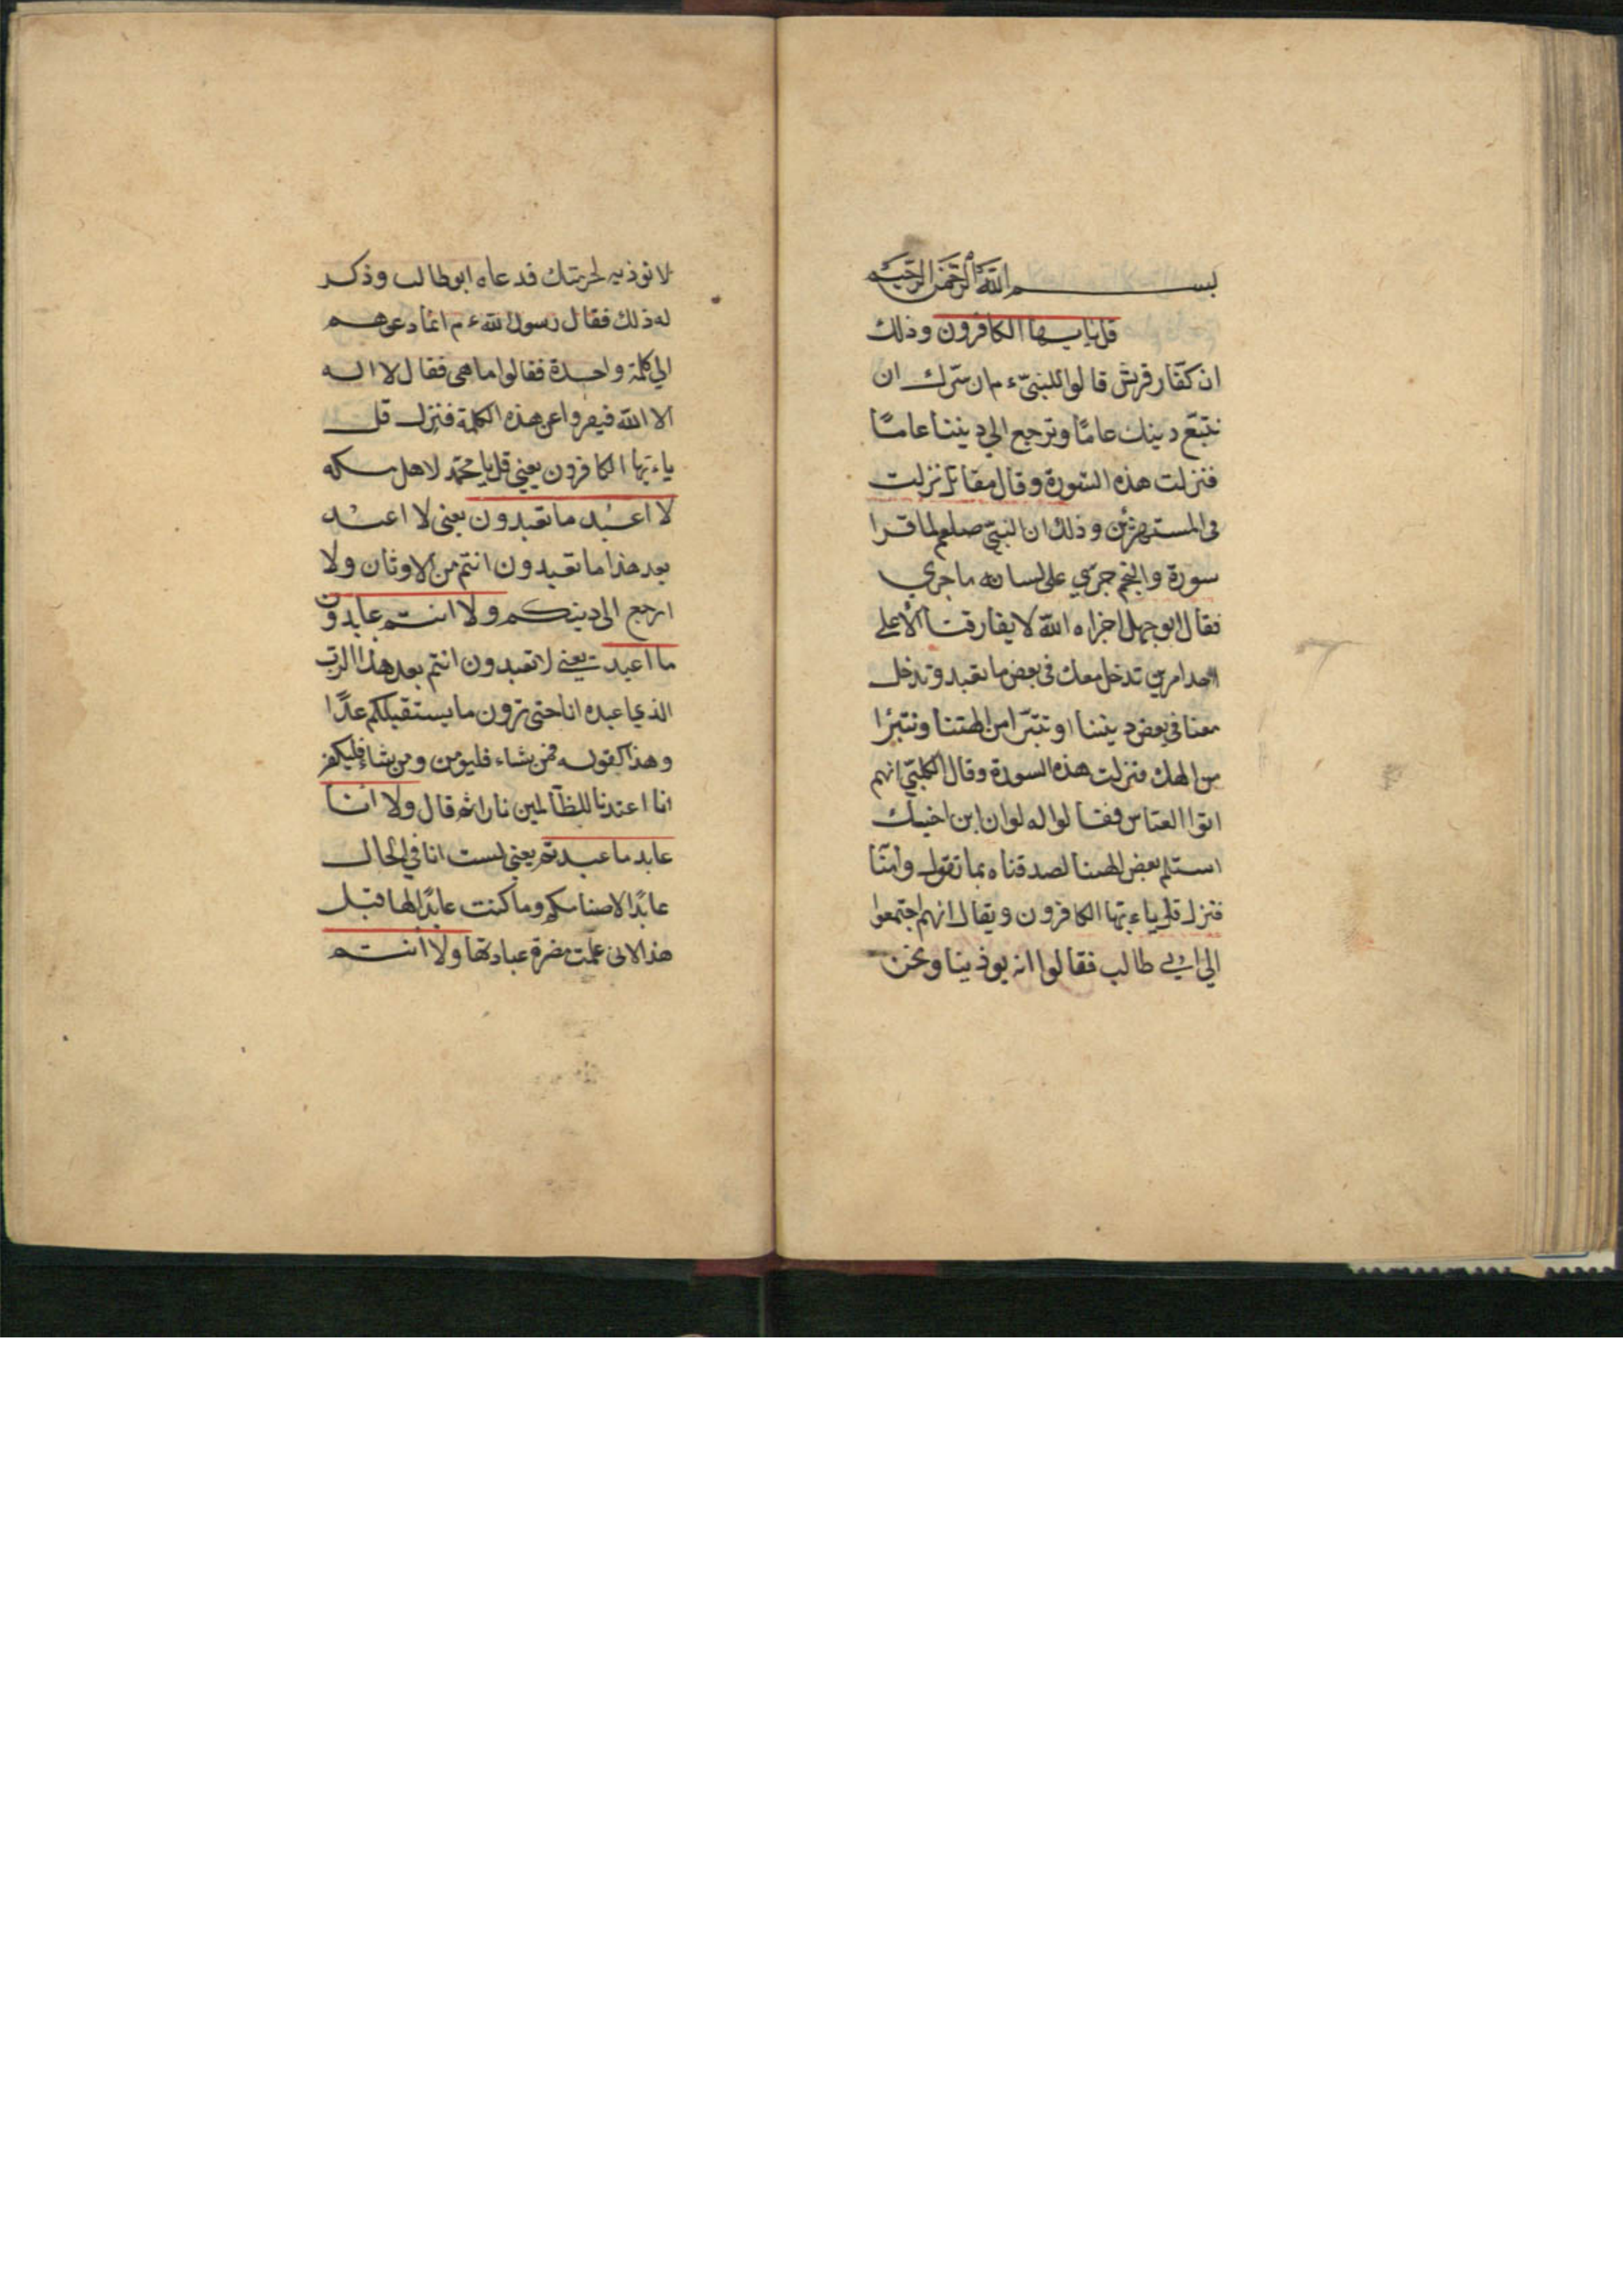 بسم الله الرحمن الرحيم
قل يايها الكافرون وذلك
ان كفّار قريش قالوا للنبيّ ء م ان سرك ان
نتبّع دينك عامًا وترجع الي ديننا عامًا
فنزلت هذه السورة وقال مقاتل نزلت
في المستهزئين وذلك ان النبيّ صلعم لما قرا
سورة والنجم جري على لسانه ما جري
فقال ابو جهل اخزاه الله لا يفارقنا الا على
احد امرين تدخل معك في بعض ما تعبد وتدخل
معنا في بعض ديننا او تتبرّا من الهتنا ونتبرا
من الهك فنزلت هذه السورة وقال الكلبيّ انهم
اتوا العباس فقالوا له لو ان ابن اخيك
استلم بعض الهتنا لصدقناه بما تقول وامنّا
فنزل قل ياءيها الكافرون ويقال انهم اجتمعوا
الي ابي طالب فقالوا انه يوذينا ونحن
لا نوذيه لحرمتك فدعاه ابو طالب وذكر
له ذلك فقال رسول الله ء م انما دعوهم
الي كلمة واحدة فقالوا ما هي فقال لا اله
الا الله فيفروا عن هذه الكلمة فنزل قل
ياءيها الكافرون يعني قل يا محمّد لاهل مكه
لا اعبد ما تعبدون يعني لا اعبد
بعد هذا ما تعبدون انتم من الاوثان ولا
ارجع الى دينكم ولا انتم عابدون
ما اعبد يعني لا تعبدون انتم بعد هذا الرب
الذي اعبده انا حتى ترون ما يستقبلكم غدًا
وهذا كقوله فمن شاء فليؤمن ومن شاء فليكفر
انا اعتدنا للظالمين نارا ثم قال ولا انا
عابد ما عبدتم يعني لست انا في الحال
عابدًا لاصنامكم وما كنت عابدًا لها قبل
هذا لانى علمت مضرة عبادتها ولا انتم